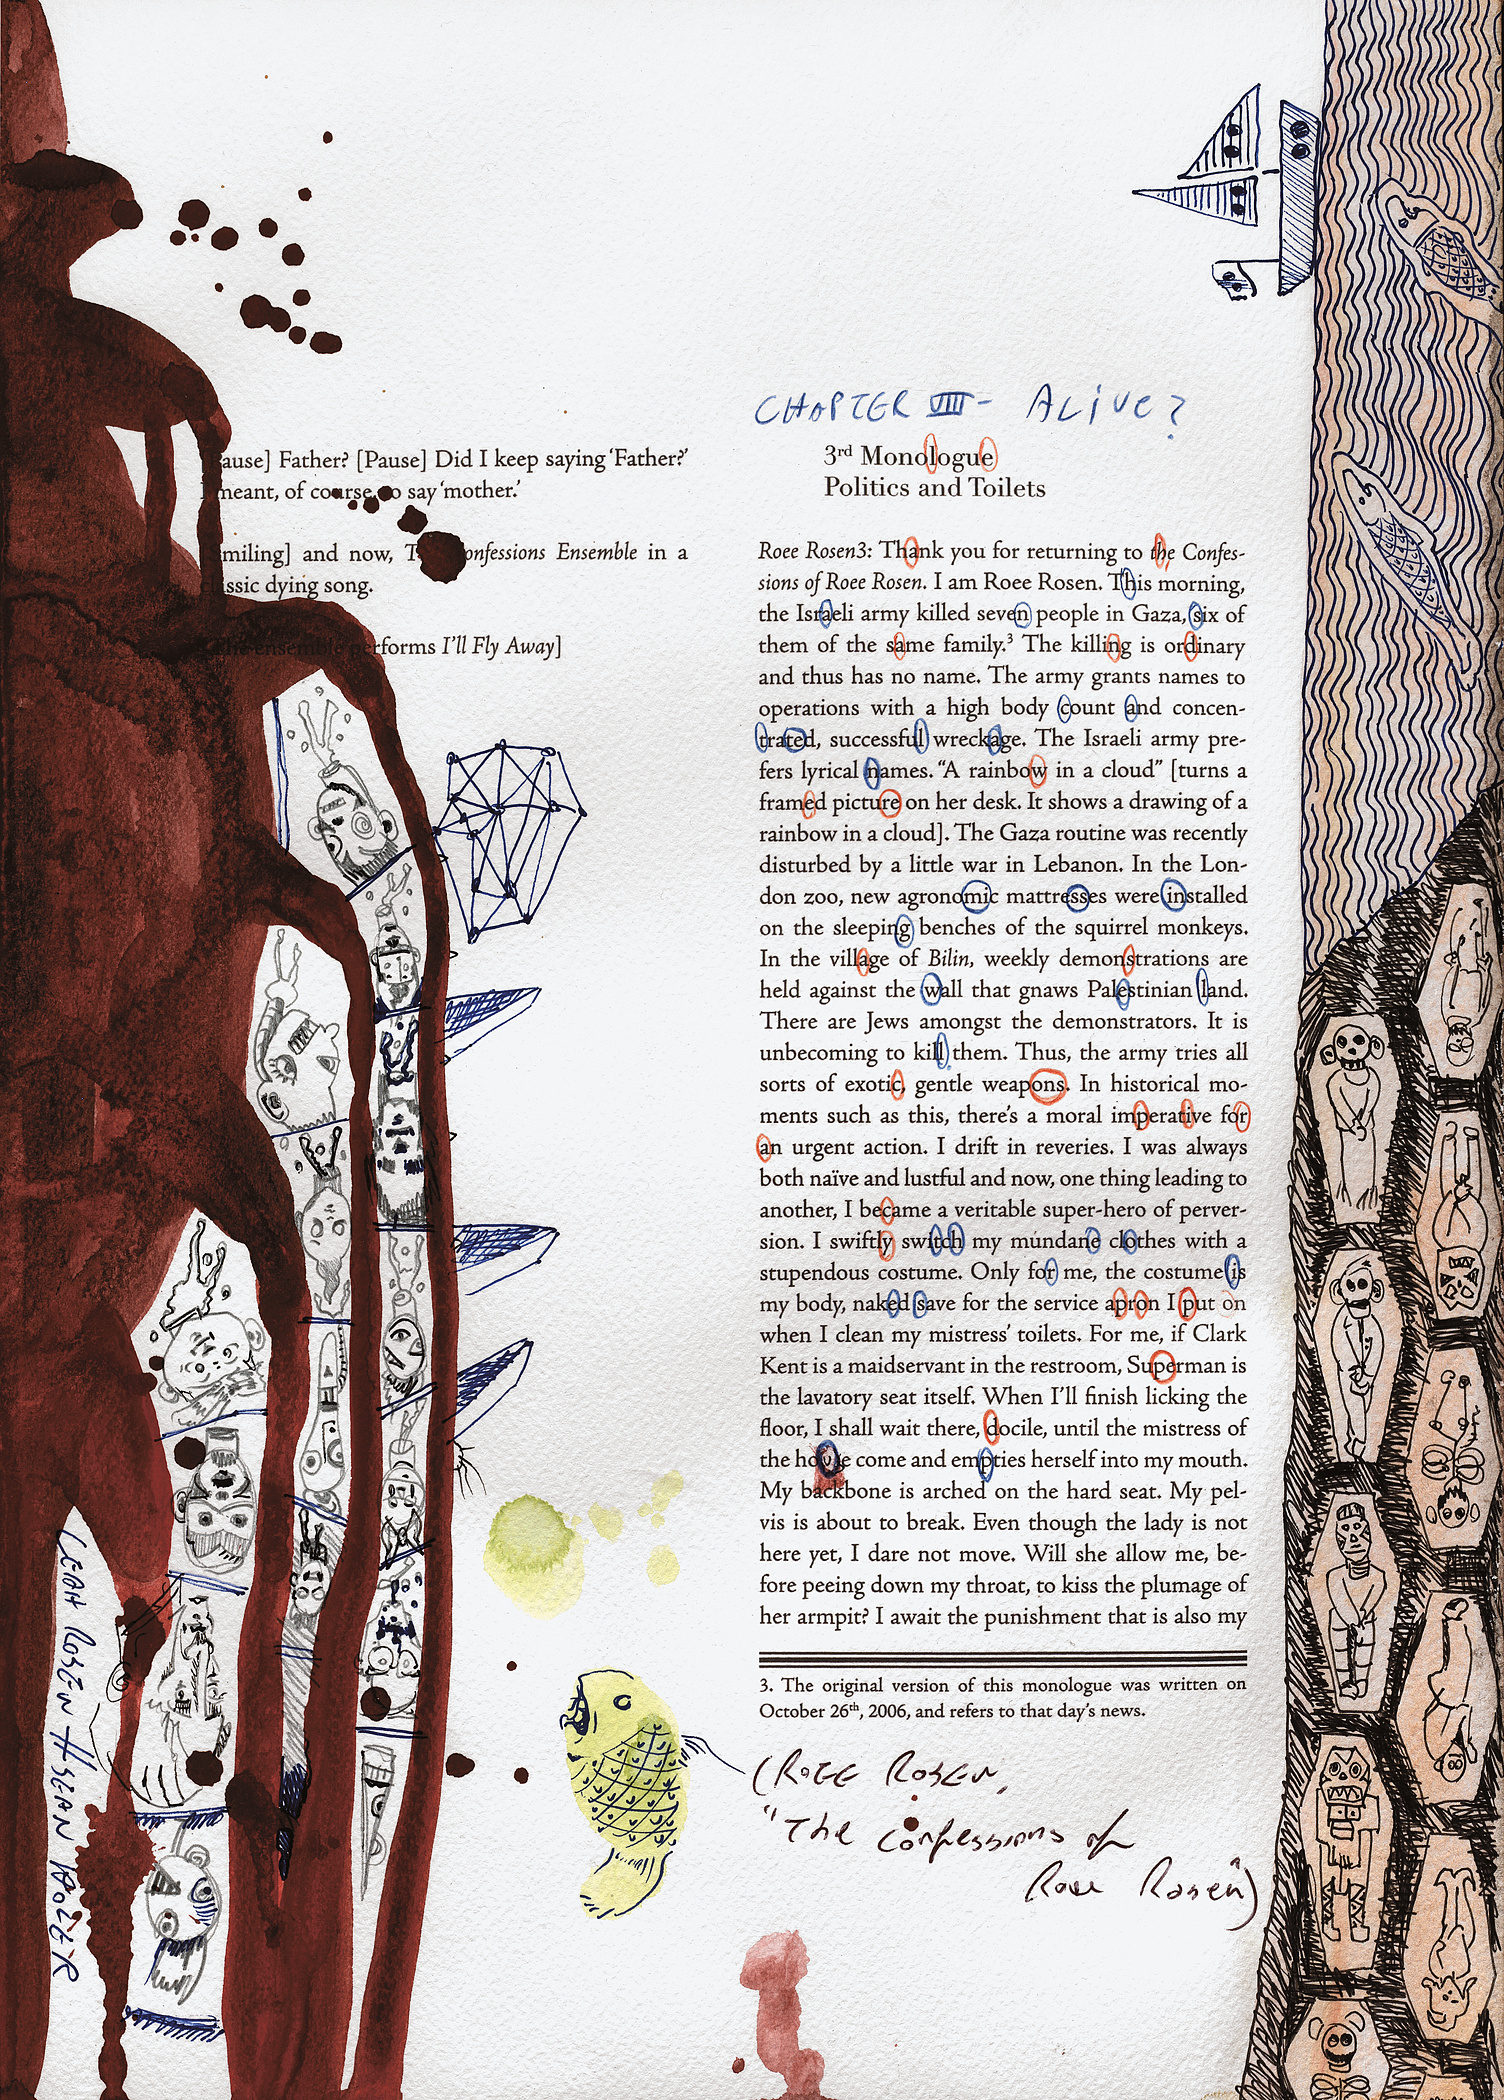 ause] Father? [Pause] Did I keep saying 'Father?'
meant, of course, to say 'mother.'
miling] and now, T onfessions Ensemble in a
ssic dying song.
ensemble performs I'll Fly Away]
CHAPTER VIII - ALIVE?
3rd Monologue
Politics and Toilets
Roee Rosen3: Thank you for returning to the Confes-
sions of Roee Rosen. I am Roee Rosen. This morning,
the Israeli army killed seven people in Gaza, six of
them of the same family.³ The killing is ordinary
and thus has no name. The army grants names to
operations with a high body count and concen-
trated, successful wreckage. The Israeli army pre-
fers lyrical names. “A rainbow in a cloud” [turns a
framed picture on her desk. It shows a drawing of a
rainbow in a cloud]. The Gaza routine was recently
disturbed by a little war in Lebanon. In the Lon-
don zoo, new agronomic mattresses were installed
on the sleeping benches of the squirrel monkeys.
In the village of Bilin, weekly demonstrations are
held against the wall that gnaws Palestinian land.
There are Jews amongst the demonstrators. It is
unbecoming to kill them. Thus, the army tries all
sorts of exotic, gentle weapons. In historical mo-
ments such as this, there's a moral imperative for
an urgent action. I drift in reveries. I was always
both naïve and lustful and now, one thing leading to
another, I became a veritable super-hero of perver-
sion. I swiftly switch my mundane clothes with a
stupendous costume. Only for me, the costume is
my body, naked save for the service apron I put on
when I clean my mistress' toilets. For me, if Clark
Kent is a maidservant in the restroom, Superman is
the lavatory seat itself. When I'll finish licking the
floor, I shall wait there, docile, until the mistress of
the house come and empties herself into my mouth.
My backbone is arched on the hard seat. My pel-
vis is about to break. Even though the lady is not
here yet, I dare not move. Will she allow me, be-
fore peeing down my throat, to kiss the plumage of
her armpit? I await the punishment that is also my
3. The original version of this monologue was written on
October 26th, 2006, and refers to that day's news.
(ROEE ROSEN,
"The confessions of
Roee Rosen")
LEAH ROSEN